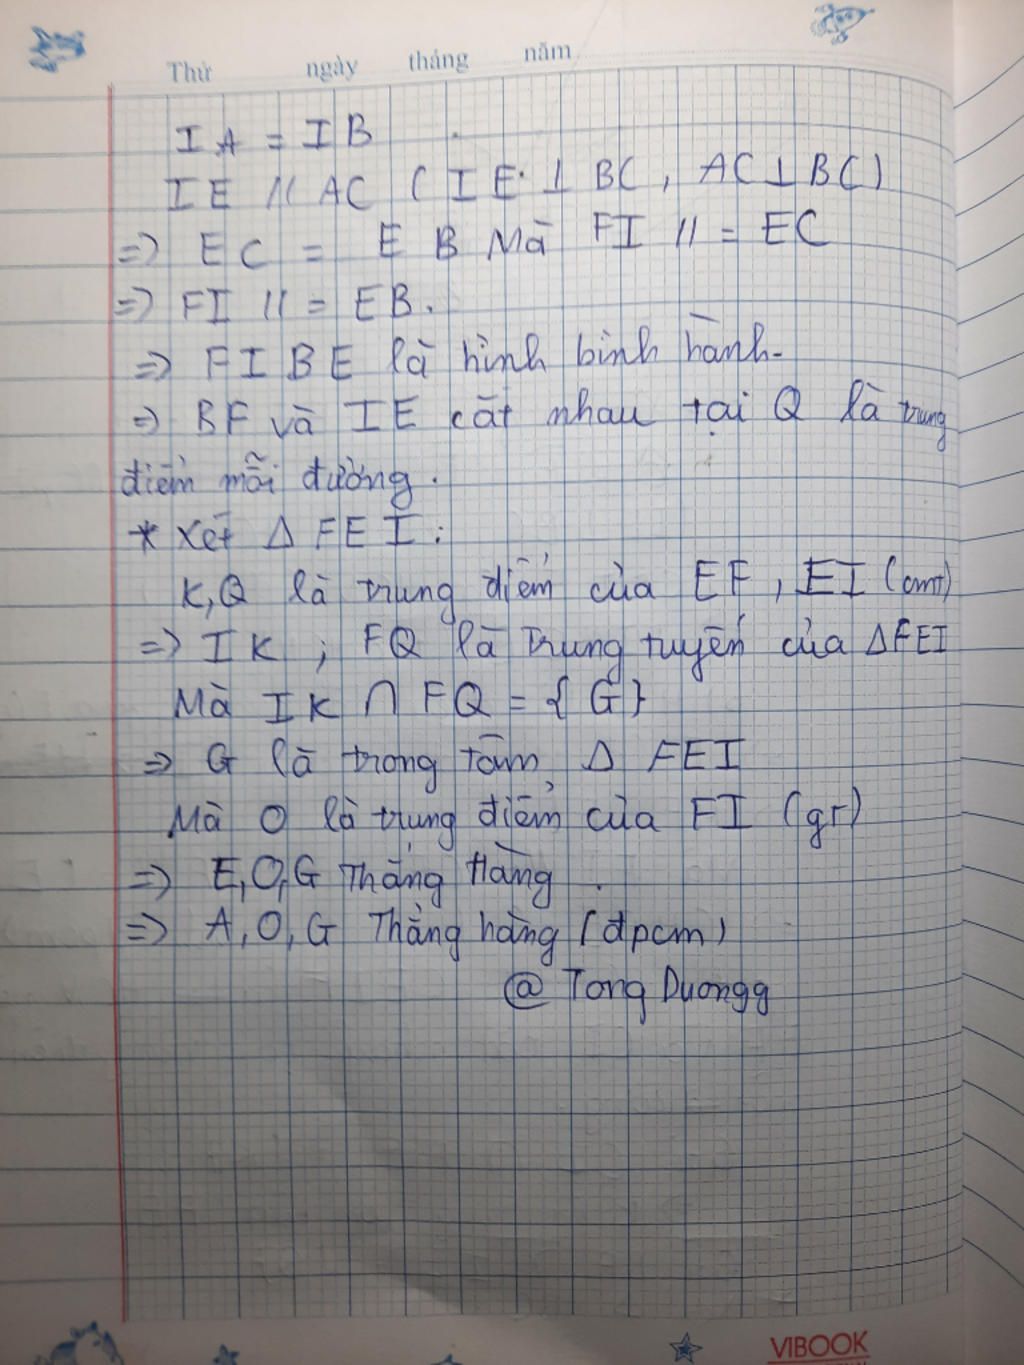 Thứ ngày tháng năm
IA = IB
IE // AC ( IE ⊥ BC, AC ⊥ BC)
=> EC = EB Mà FI // = EC
=> FI // = EB.
=> FIBE là hình bình hành.
=> BF và IE cắt nhau tại Q là trung
điểm mỗi đường.
* Xét Δ FEI:
K,Q là trung điểm của EF, EI (cmt)
=> IK ; FQ là trung tuyến của ΔFEI
Mà IK ∩ FQ = { G}
=> G là trong tâm Δ FEI
Mà O là trung điểm của FI (gt)
=> E,O,G Thẳng Hàng
=> A,O,G Thẳng hàng (đpcm)
@ Tong Duongg
VIBOOK